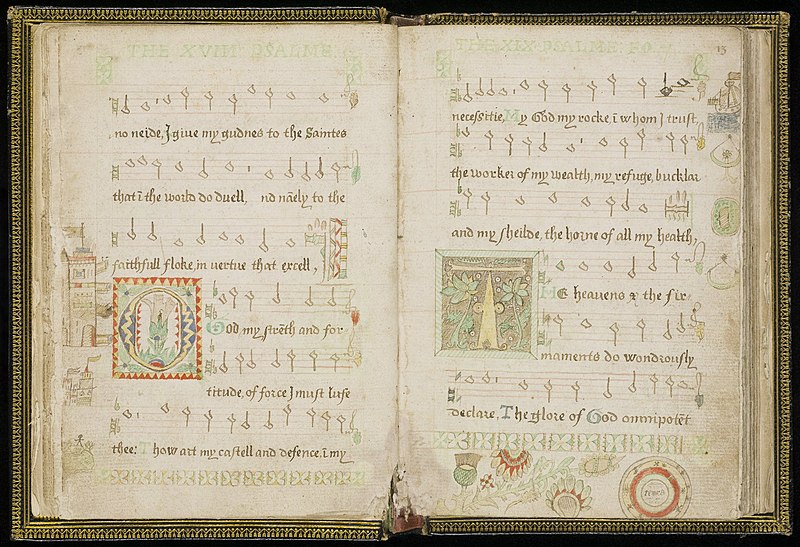 THE XVIII PSALME
no neide, J giue my gudnes to the Saintes
that ī the world do duell, nd nāely to the
faithfull floke, in vertue that excell,
O
God my strēth and for-
titude, of force J must luse
thee: Thow art my castell and defence. ī my
THE XIX PSALME FO.
13
necessitie, My God my rocke, ī whom J trust,
the worker of my wealth, my refuge, bucklar
and my sheilde, the horne of all my health,
T
HE heavens & the fir-
maments do wondrously
declare, The glore of God omnipotēt